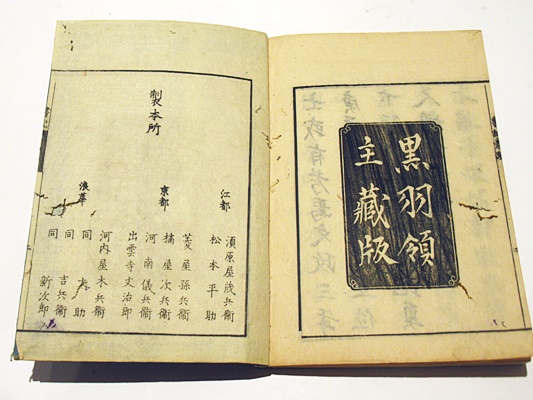 黒羽領
主藏版
製本所
江都
須原屋茂兵衛
松本平助
京都
菱屋孫兵衛
橘屋次兵衛
河南儀兵衛
出雲寺文治郎
浪華
河内屋木兵衛
同 太助
同 吉兵衛
同 新次郎